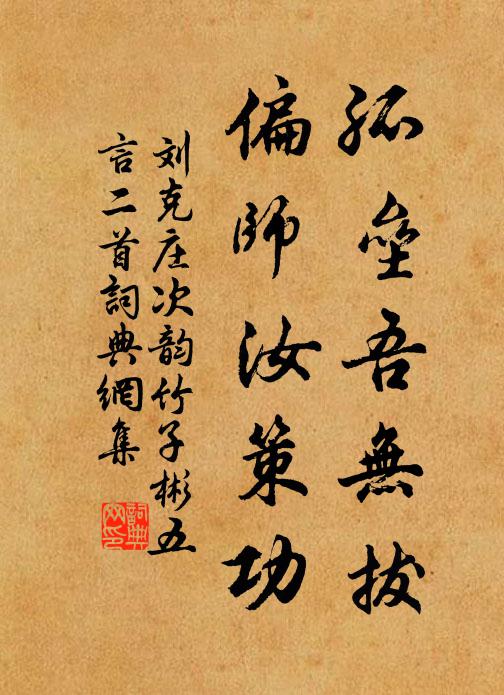 孤壘吾無拔
偏師汝策功
刘克庄次韵竹子彬五
言二首詞典網集
詞典
网印